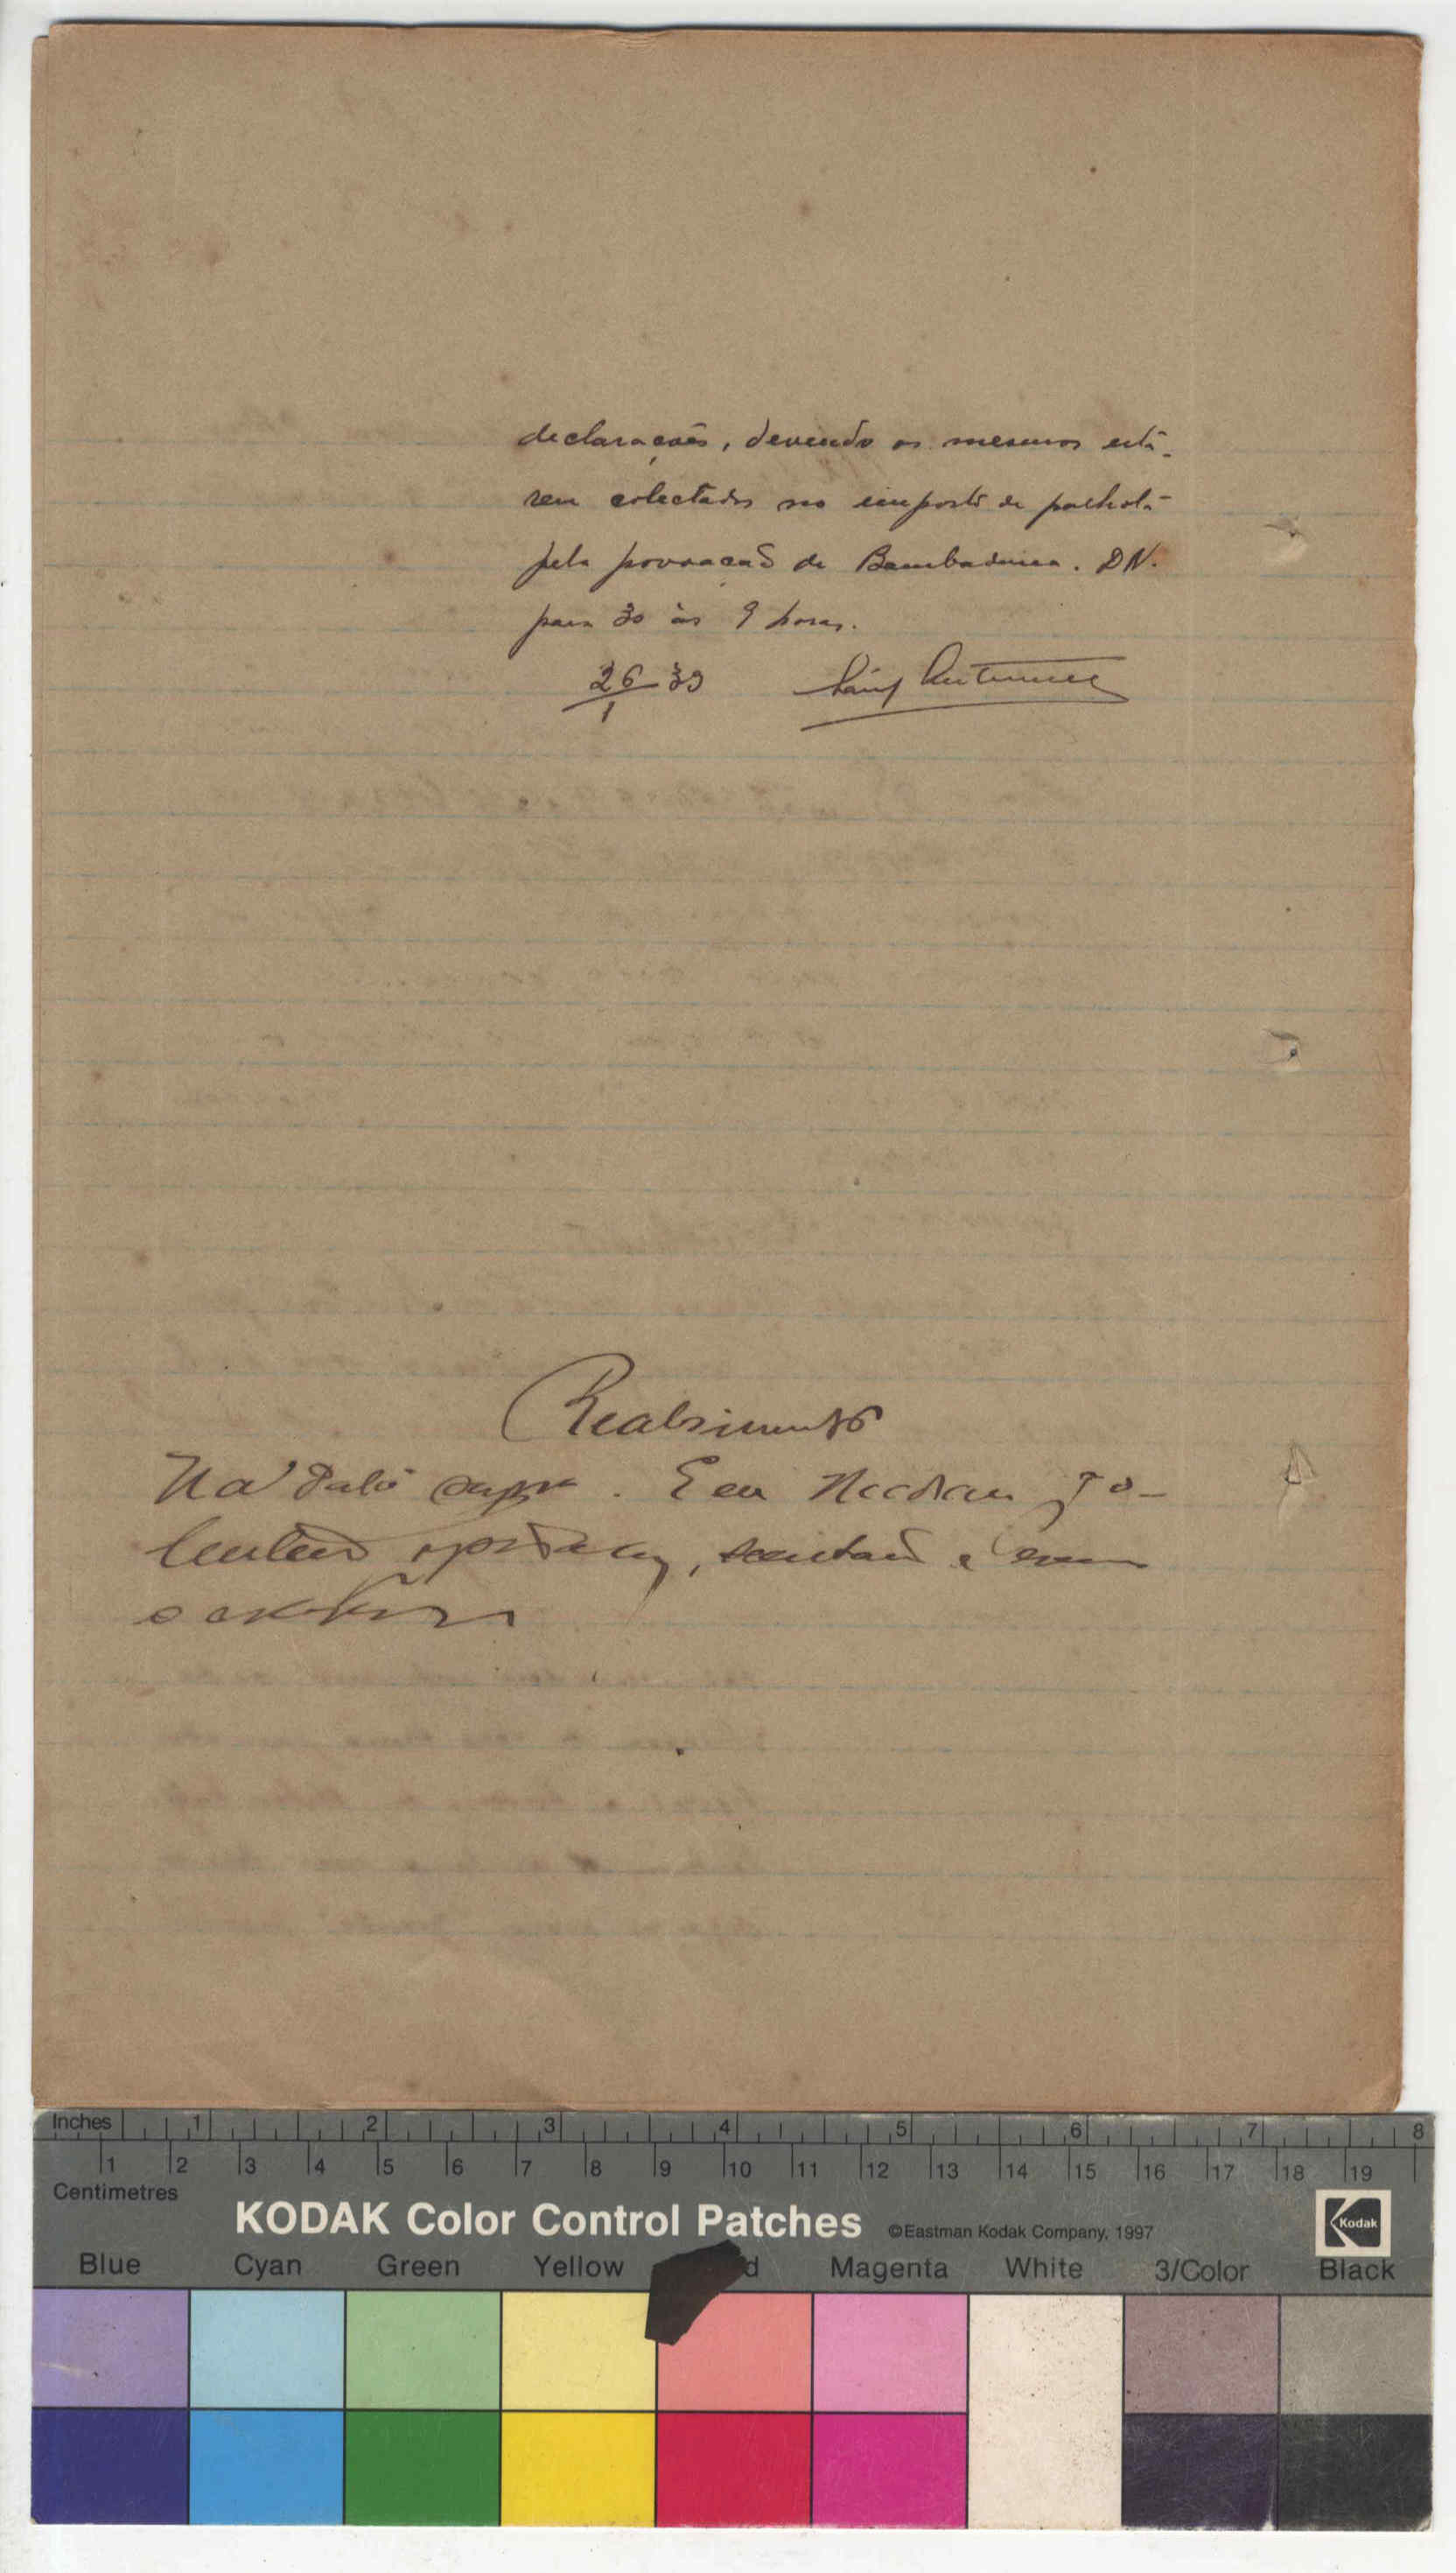 declarações, devendo os mesmos está-
rem colectados no imposto de palhota
pela povoação de Bambadinca. DN.
para 30 às 9 horas.
26-39
1
Antunes
Recebimento
Na data supra. Eu
lentino, escrivão
o escrevi
Inches 1 2 3 4 5 6 7 8
1 2 3 4 5 6 7 8 9 10 11 12 13 14 15 16 17 18 19
Centimetres
KODAK Color Control Patches ©Eastman Kodak Company, 1997 Kodak
Blue Cyan Green Yellow d Magenta White 3/Color Black